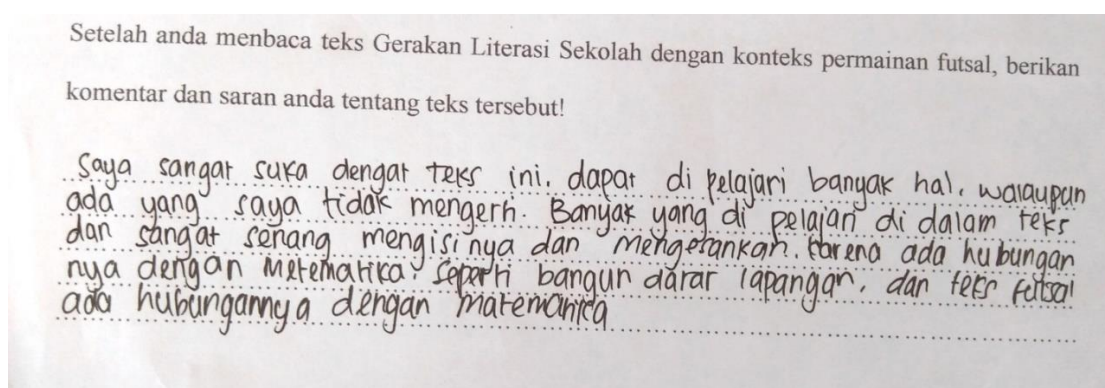 Setelah anda menbaca teks Gerakan Literasi Sekolah dengan konteks permainan futsal, berikan
komentar dan saran anda tentang teks tersebut!
Saya sangat suka dengat teks ini. dapat di pelajari banyak hal. walaupun
ada yang saya tidak mengerti. Banyak yang di pelajari di dalam teks
dan sangat senang mengisi nya dan mengerankan. karena ada hubungan
nya dengan Metematika seperti bangun datar lapangan, dan teks futsal
ada hubungannya dengan matematika